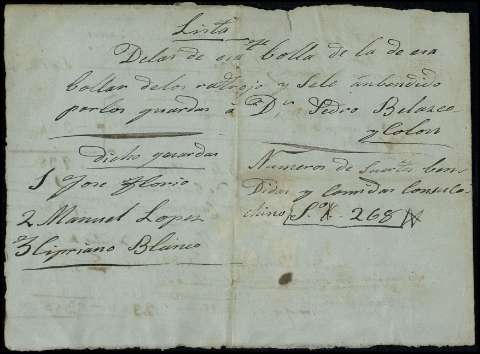 Lista
Delas de esa qe bolla de la de esa
bollar delos rastrojo y sele an bendido
por los guardas á Dn Pedro Belasco
y Colon
dichos guardas
1 Jose Florio
2 Manuel Lopez
3 Cipriano Blanco
Numeros de Suertes ben
Didas y comidas Consu Co
chino, Son 268